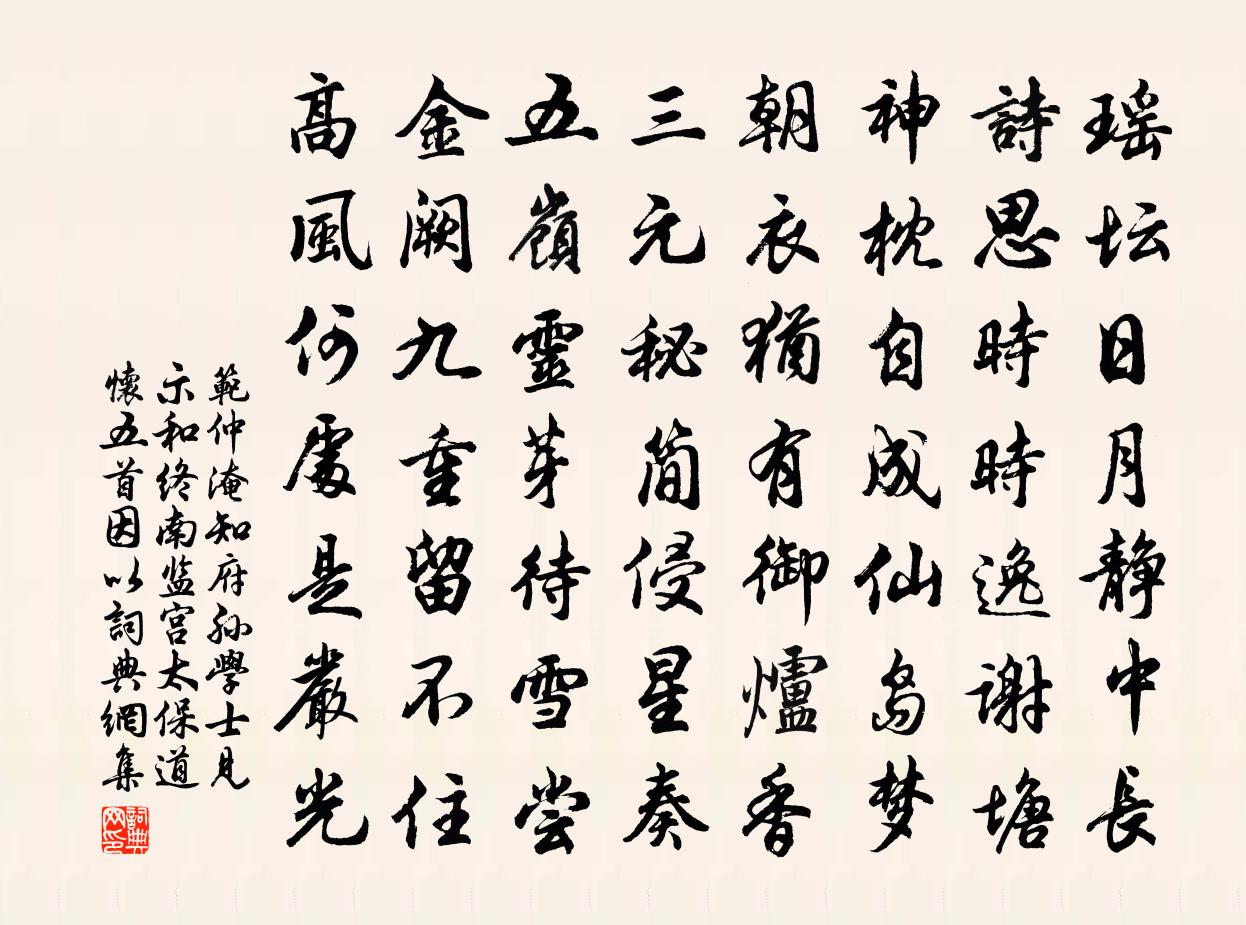 瑶坛日月静中長
詩思時時逸谢塘
神枕自成仙岛梦
朝衣猶有御爐香
三元秘简侵星奏
五嶺靈芽待雪尝
金阙九重留不住
高風何處是嚴光
範仲淹知府孙學士見
示和终南监宫太保道
懷五首因以詞典網集
詞典网印